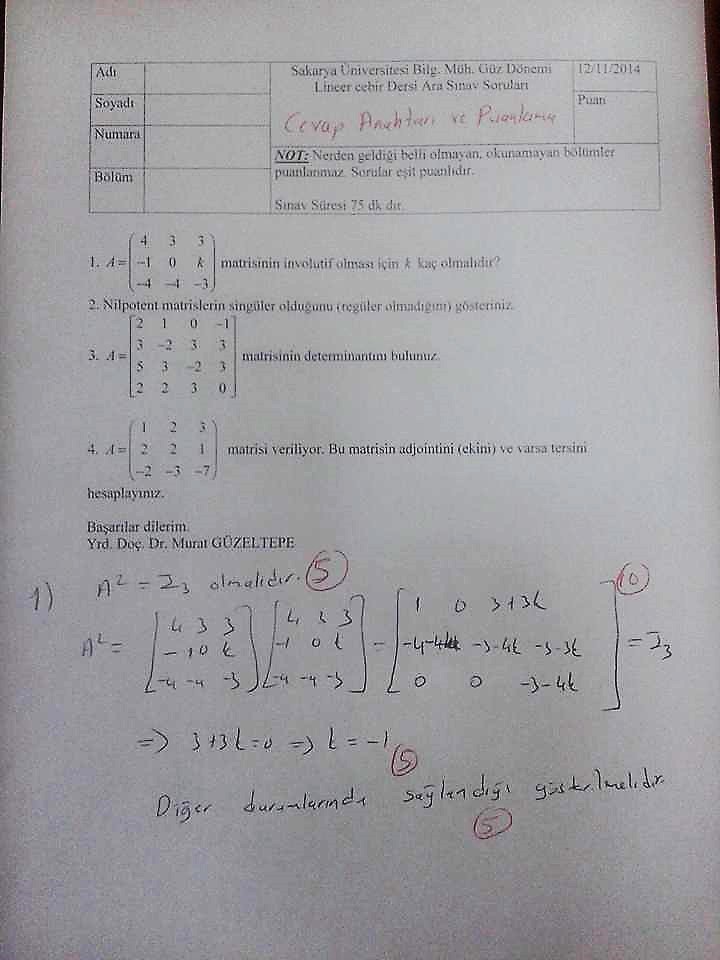 Adı
Soyadı
Numara
Bölüm
Sakarya Üniversitesi Bilg. Müh. Güz Dönemi
Lineer cebir Dersi Ara Sınav Soruları
Cevap Anahtarı ve Puanlama
12/11/2014
Puan
NOT: Nerden geldiği belli olmayan, okunamayan bölümler
puanlanmaz. Sorular eşit puanlıdır.
Sınav Süresi 75 dk dır.
4 3 3
1. A = -1 0 k matrisinin involutif olması için k kaç olmalıdır?
-4 -4 -3
2. Nilpotent matrislerin singüler olduğunu (regüler olmadığını) gösteriniz.
2 1 0 -1
3 -2 3 3
3. A = matrisinin determinantını bulunuz.
5 3 -2 3
2 2 3 0
1 2 3
4. A = 2 2 1 matrisi veriliyor. Bu matrisin adjointini (ekini) ve varsa tersini
-2 -3 -7
hesaplayınız.
Başarılar dilerim.
Yrd. Doç. Dr. Murat GÜZELTEPE
1) A² = I₃ olmalıdır. 5
10
4 3 3 4 3 3 1 0 3+3k
A² = -1 0 k -1 0 k = -4-4k -3-4k -3-3k = I₃
-4 -4 -3 -4 -4 -3 0 0 -3-4k
=> 3+3k=0 => k = -1
5
Diğer durumlarında sağlandığı gösterilmelidir.
5